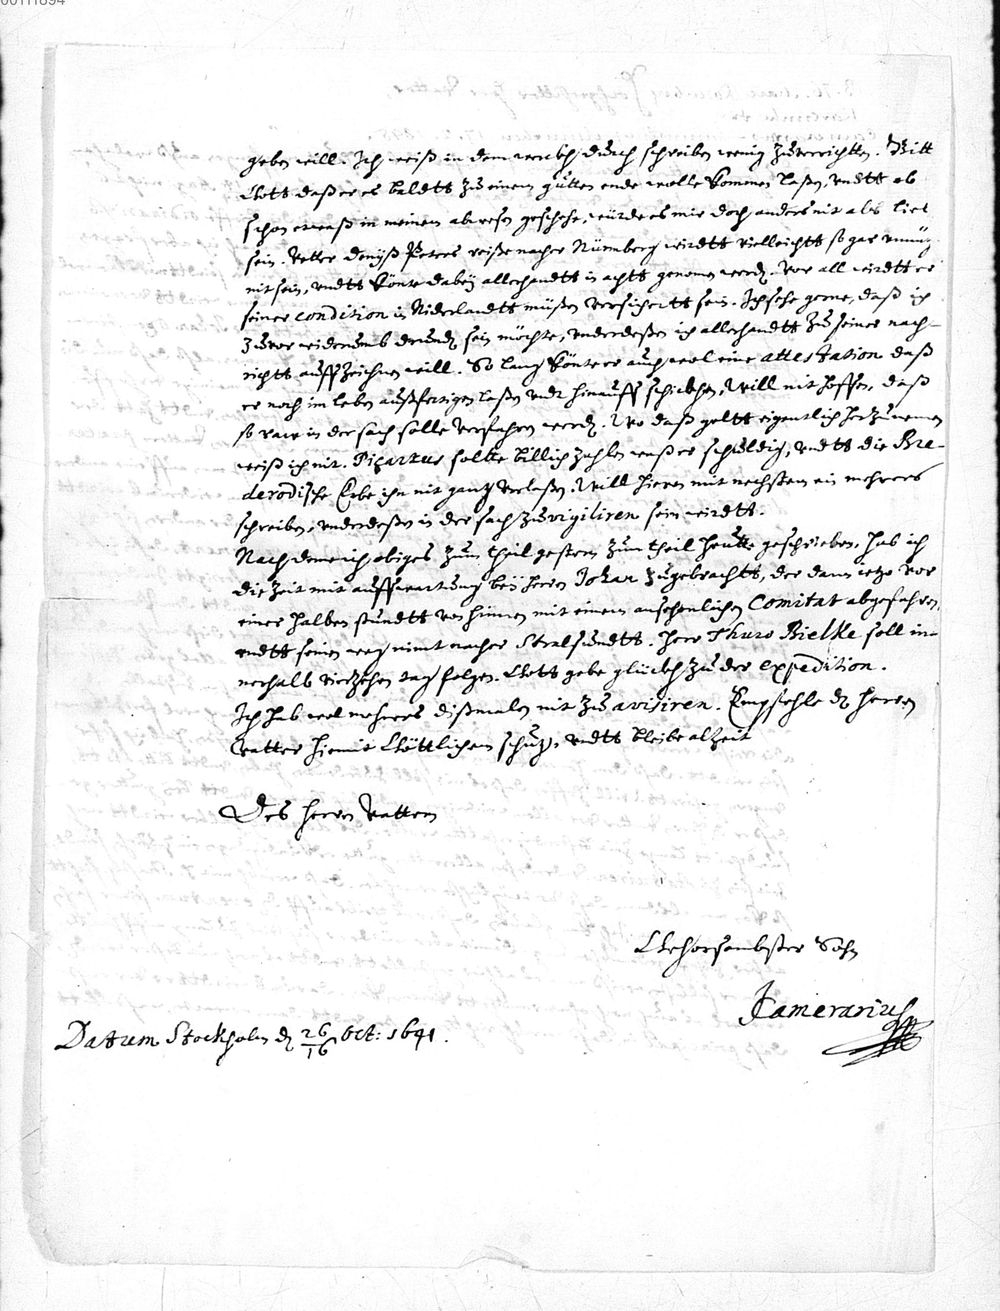 00111894
geben will. Ich weiß in dem werckh durch schreiben wenig zuverrichten. Bitt
Gott daß er es baldt zu einem gutten ende wolle kommen laßen, undt ob
schon etwaß in meinem abwesen geschehe, würde es mir doch anders nit als lieb
sein. Vetter Peters reiße nacher Nürmberg wirdt vielleicht so gar unnüz
nit sein, undt könte dabey allerhandt in acht genomen werden. Vor all wirdt er
seiner condition in Niderlandt müßen versichert sein. Ich sehe gerne, daß ich
zuvor widerumb drunden sein möchte, underdeßen ich allerhandt zu seiner nach-
richt auffzeichnen will. So lang könte er auch wol eine attestation daß
er noch im leben außfertigen laßen undt hinauff schickhen. Will nit hoffen, daß
so raw in der sach solle verfahren werden. Wo daß gelt eigentlich herzunemen
weiß ich nit. Picartus solte billich zahlen waß er schuldig, undt die Bre-
derodische Erbe ihn nit gantz verlaßen. Will hievon mit nechstem ein mehrers
schreiben, underdeßen in der sach zu vigiliren sein wirdt.
Nach deme ich obiges zum theil gestern zum theil heutte geschrieben, hab ich
die zeit mit auffwartung bey herrn zugebracht, der dann ietzo vor
einer halben stundt von hinnen mit einem ansehenlichen Comitat abgefahren,
undt seinen weg nimt nacher Stralsundt. Herr Thuro Bielke soll in-
nerhalb vierzehen tag folgen. Gott gebe glückh zu der expedition.
Ich hab vol mehrers dißmalen nit zu avisiren. Empfehle den herrn
Vatter hiemit Göttlichem schutz, undt bleibe alzeit
Des herrn Vattern
Gehorsambster Sohn
Kamerarius
Datum Stockholm den 26/16 Oct: 1641.